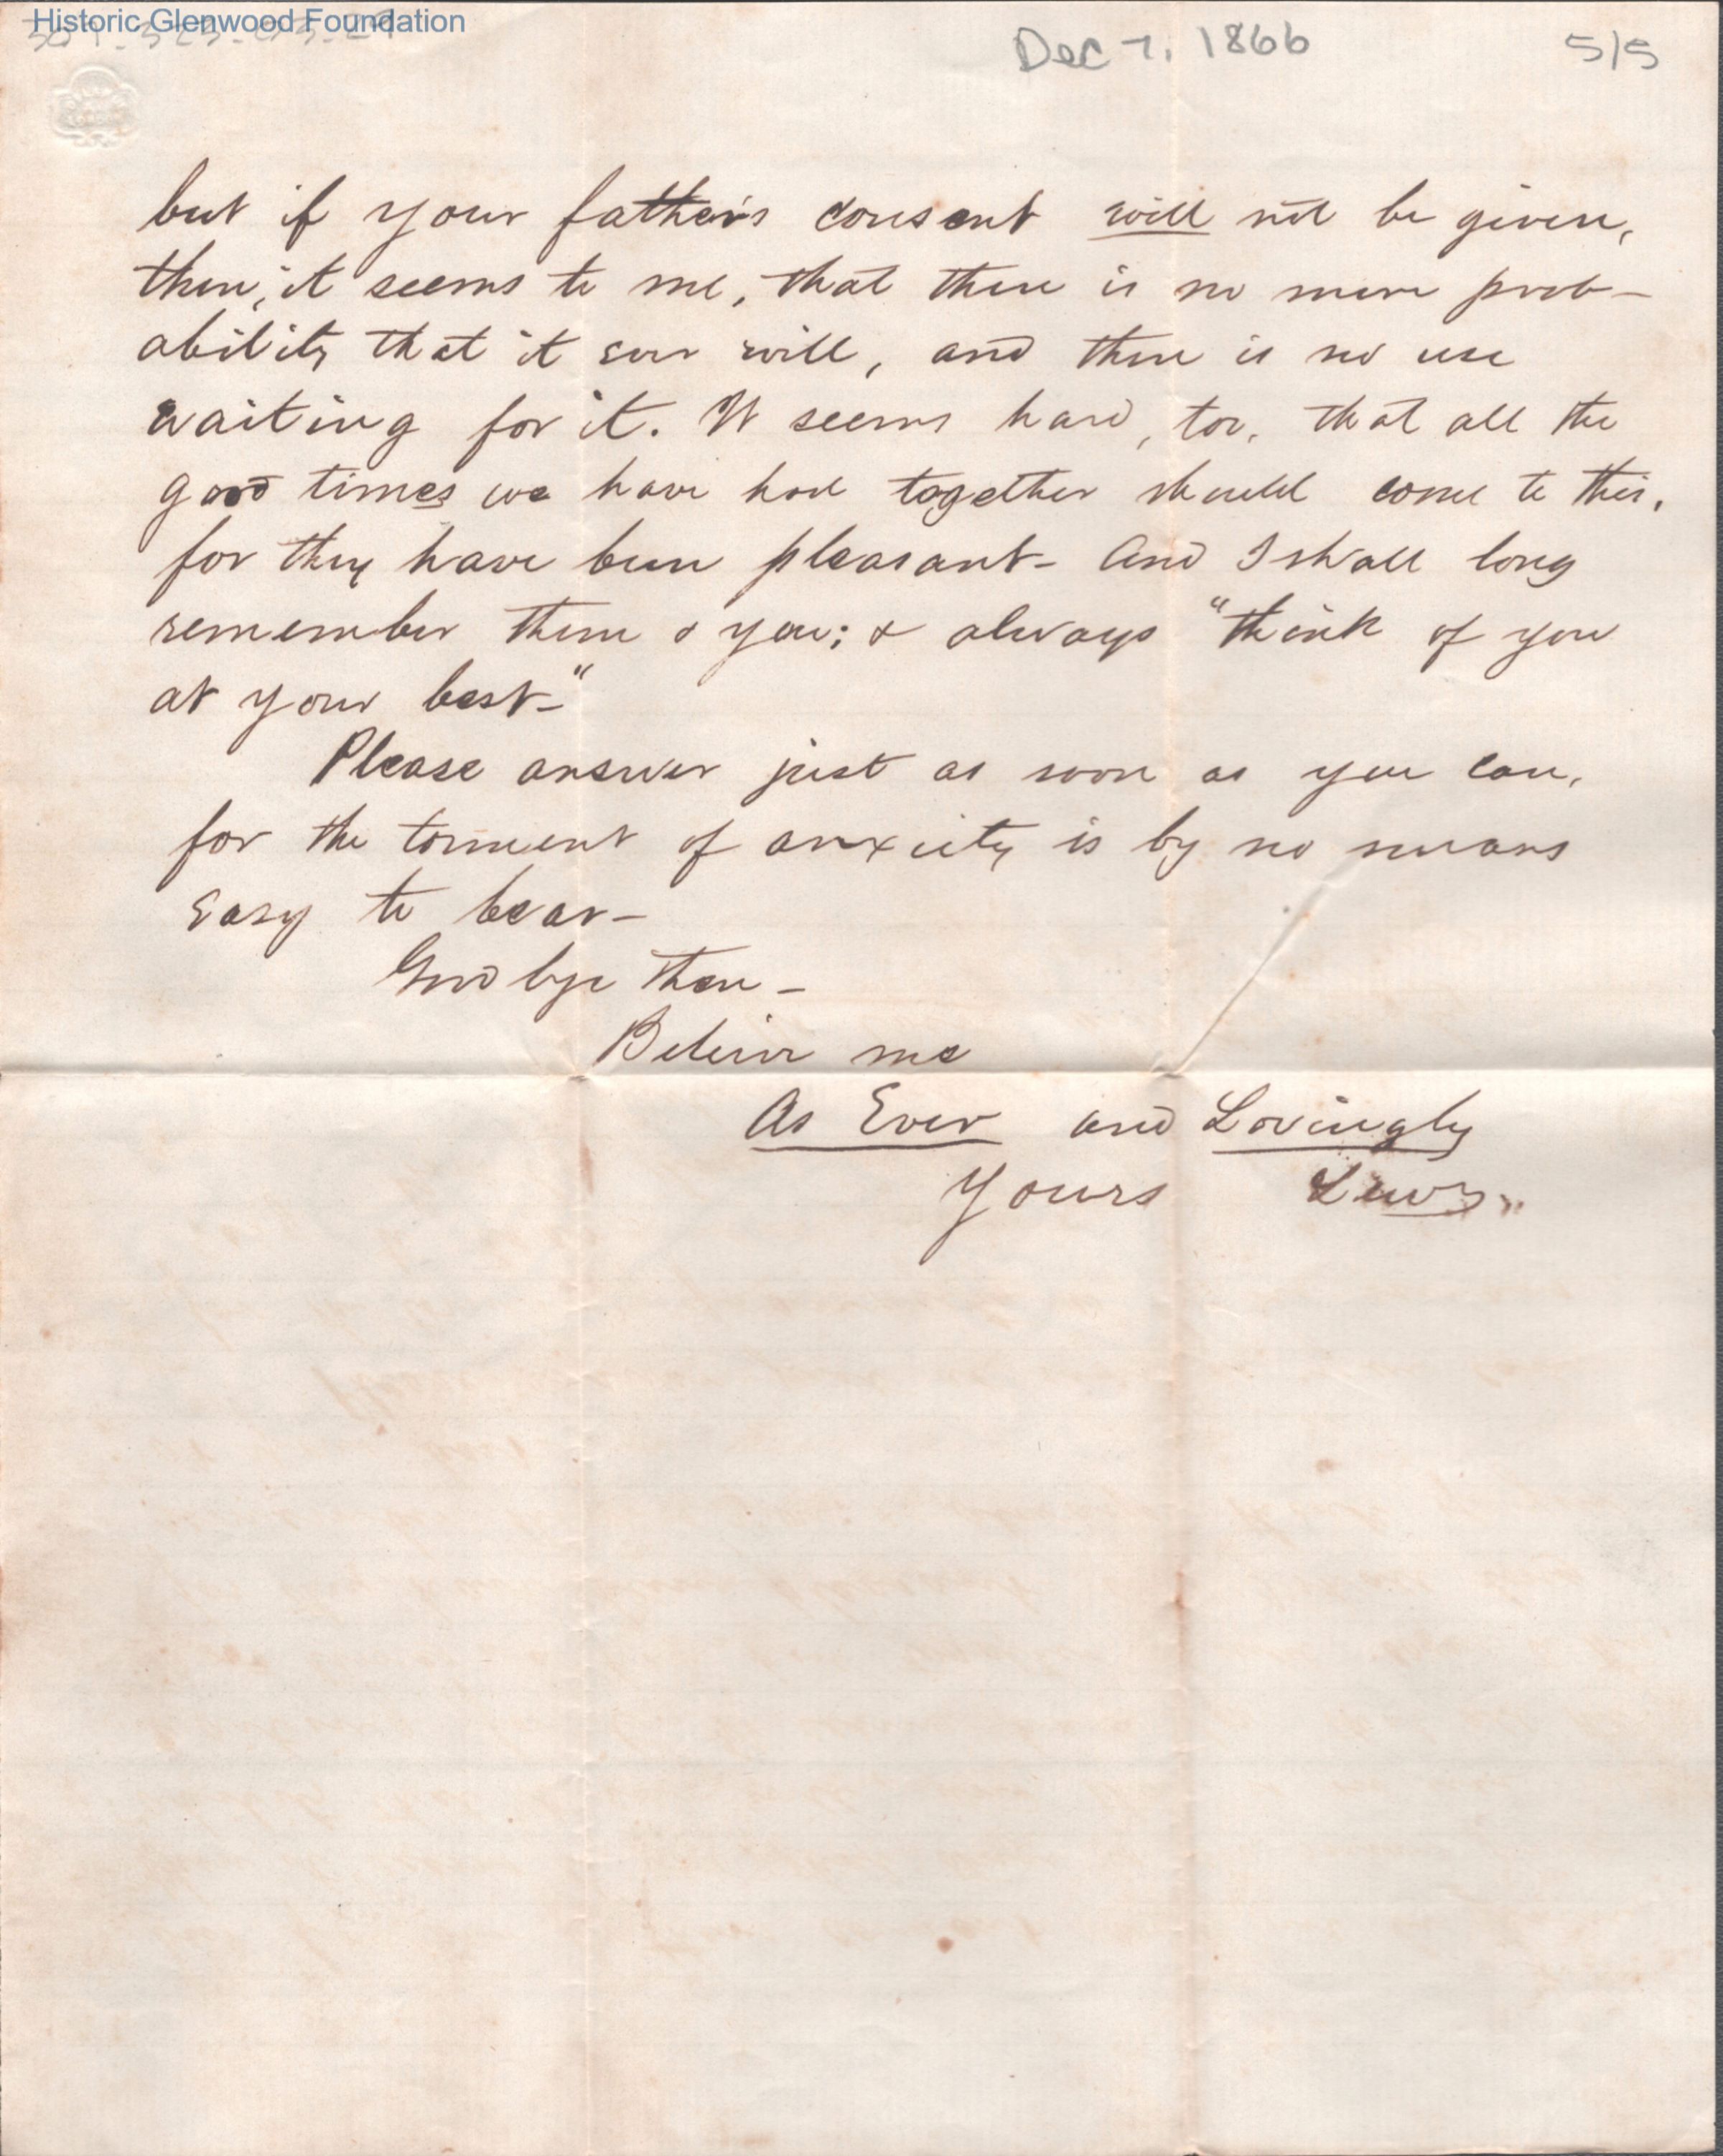 Historic Glenwood Foundation
Dec 7, 1866
5/5
but if your father's consent will not be given,
then, it seems to me, that there is no more prob-
ability that it ever will, and there is no use
waiting for it. It seems hard, too, that all the
good times we have had together should come to this,
for they have been pleasant- And I shall long
remember them & you; & always "think of you
at your best-"
Please answer just as soon as you can,
for the torment of anxiety is by no means
easy to bear-
Good bye then-
Believe me
As Ever and Lovingly
Yours